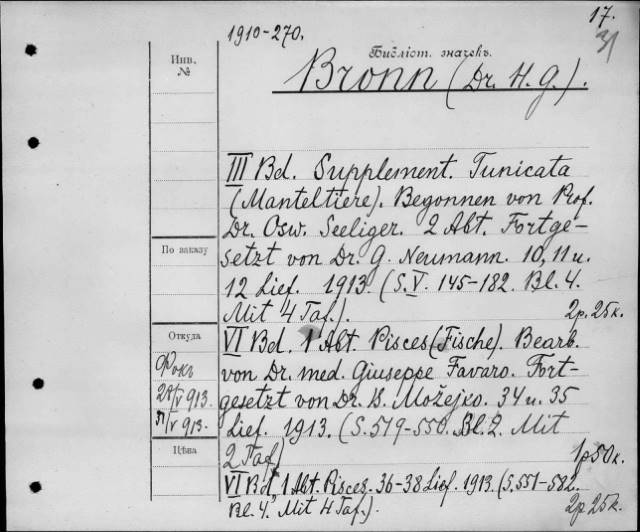 17.
31
1910-270.
Библіот. значекъ.
Инв.
№
Bronn (Dr. H. G.).
III Bd. Supplement. Tunicata
(Manteltiere). Begonnen von Prof.
Dr. Osw. Seeliger. 2 Abt. Fortge-
setzt von Dr. G. Neumann. 10, 11 u.
12 Lief. 1913. (S. V. 145-182. Bl. 4.
Mit 4 Taf.). 2 р. 25 к.
По заказу
Откуда
VI Bd. 1 Abt. Pisces (Fische). Bearb.
von Dr. med. Giuseppe Favaro. Fort-
gesetzt von Dr. B. Možejko. 34 u. 35
Lief. 1913. (S. 519-550. Bl. 2. Mit
2 Taf) 1 р 50 к.
Фокъ
V 913.
V 913.
Цѣна
VI Bd. 1 Abt. Pisces. 36-38 Lief. 1913. (S. 551-582.
Bl. 4. Mit 4 Taf.). 2 р. 25 к.